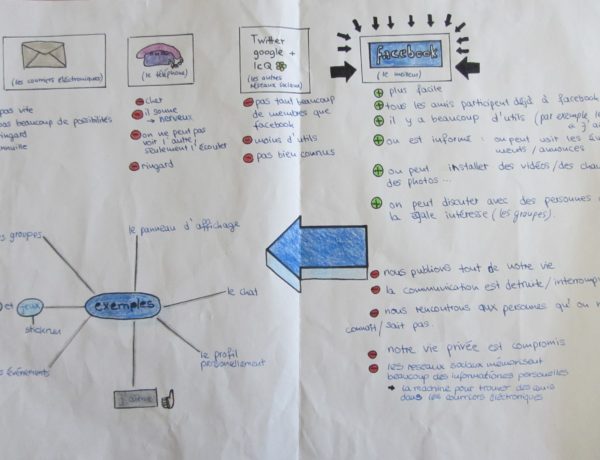 (les courriers électroniques)
pas vite
pas beaucoup de possibilités
ringard
(le téléphone)
cher
il sonne
→ nerveux
on ne peut pas
voir l'autre,
seulement l'écouter
ringard
Twitter
google +
IcQ
(les autres
réseaux sociaux)
pas tout beaucoup
de membres que
facebook
moins d'utils
pas bien connus
facebook
(le meilleur)
plus facile
tous les amis participent déjà à facebook
il y a beaucoup d'utils (par exemple
à j'ai
on est informé: on peut voir les
ments/annonces
on peut installer des vidéos/des
des photos ...
on peut discuter avec des personnes
la intéresse (les groupes).
nous publions tout de notre vie
la communication est detruite/
nous rencontrons aux personnes qu'on
connaît/sait pas.
notre vie privée est compromis
les reseaux sociaux mémorisent
beaucoup des informations personelles
→ la machine pour trouver des amis
dans les courriers éléctroniques
groupes
le panneau d'affichage
et jeux
exemples
le chat
le profil
personellement
événements
j'aime